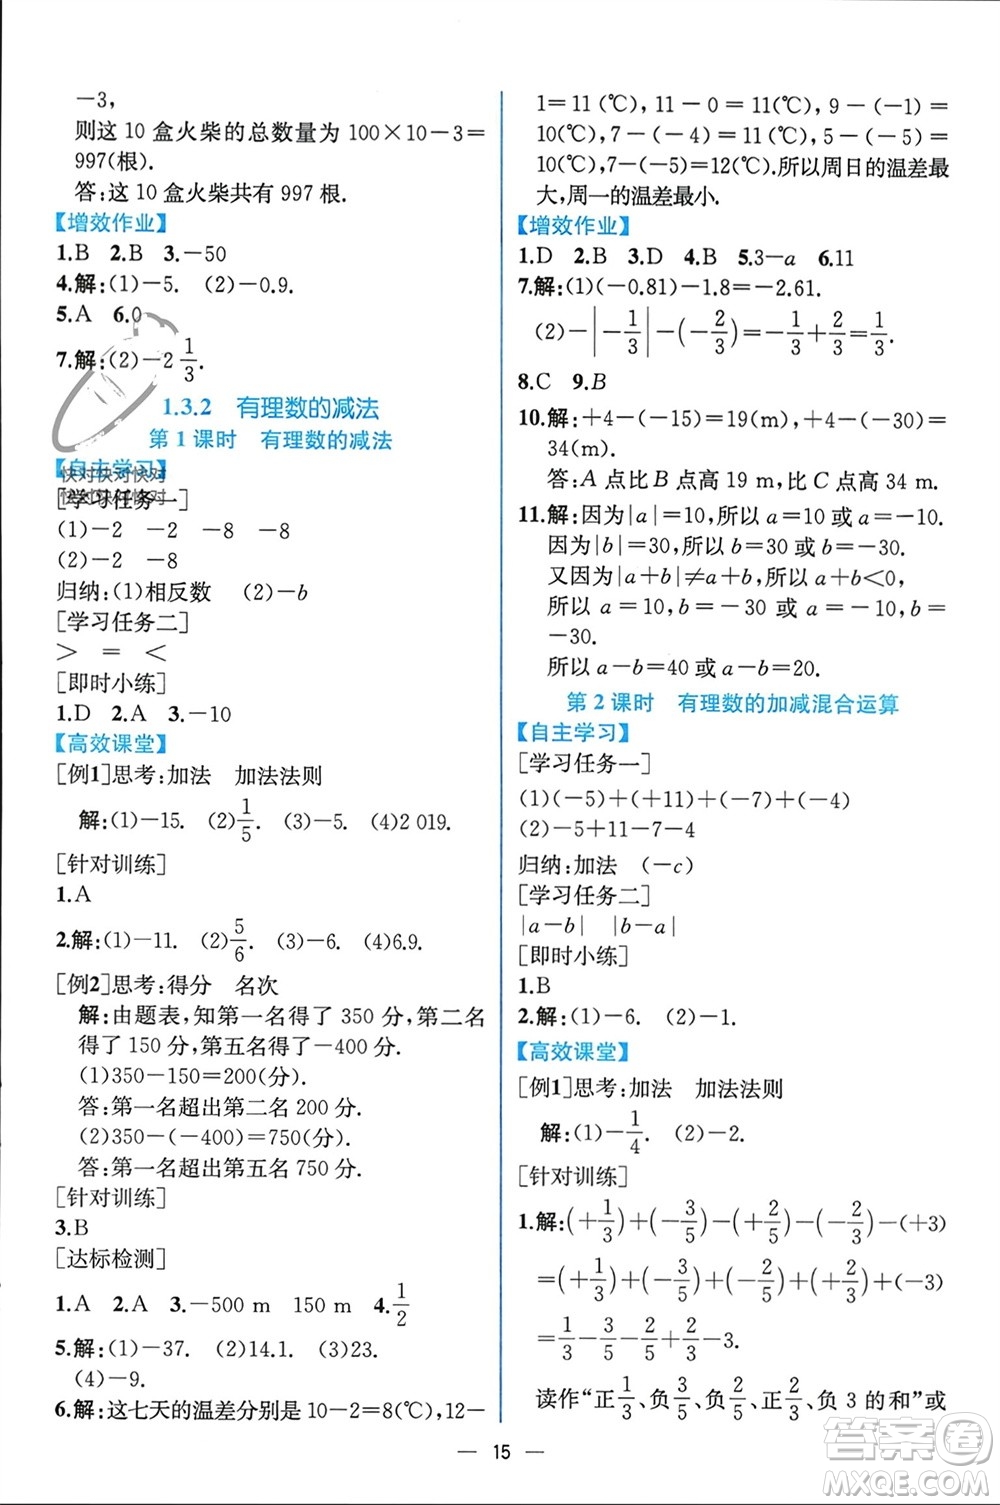 －3,
则这 10 盒火柴的总数量为 100×10－3＝
997(根).
答:这 10 盒火柴共有 997 根.
【增效作业】
1.B 2.B 3.－50
4.解:(1)－5. (2)－0.9.
5.A 6.0
7.解:(2)－2 1/3.
1.3.2 有理数的减法
第 1 课时 有理数的减法
【自主学习】
快对快对快对
[学习任务一]
快对快对快对
(1)－2 －2 －8 －8
(2)－2 －8
归纳:(1)相反数 (2)－b
[学习任务二]
＞ ＝ ＜
[即时小练]
1.D 2.A 3.－10
【高效课堂】
[例1]思考:加法 加法法则
解:(1)－15. (2)1/5. (3)－5. (4)2 019.
[针对训练]
1.A
2.解:(1)－11. (2)5/6. (3)－6. (4)6.9.
[例2]思考:得分 名次
解:由题表,知第一名得了 350 分,第二名
得了 150 分,第五名得了－400 分.
(1)350－150＝200(分).
答:第一名超出第二名 200 分.
(2)350－(－400)＝750(分).
答:第一名超出第五名 750 分.
[针对训练]
3.B
[达标检测]
1.A 2.A 3.－500 m 150 m 4.1/2
5.解:(1)－37. (2)14.1. (3)23.
(4)－9.
6.解:这七天的温差分别是 10－2＝8(℃),12－
1＝11(℃), 11－0＝11(℃), 9－(－1)＝
10(℃),7－(－4)＝11(℃), 5－(－5)＝
10(℃),7－(－5)＝12(℃).所以周日的温差最
大,周一的温差最小.
【增效作业】
1.D 2.B 3.D 4.B 5.3－a 6.11
7.解:(1)(－0.81)－1.8＝－2.61.
(2)－|－1/3|－(－2/3)＝－1/3＋2/3＝1/3.
8.C 9.B
10.解:＋4－(－15)＝19(m),＋4－(－30)＝
34(m).
答:A 点比 B 点高 19 m,比 C 点高 34 m.
11.解:因为|a|＝10,所以 a＝10 或 a＝－10.
因为|b|＝30,所以 b＝30 或 b＝－30.
又因为|a＋b|≠a＋b,所以 a＋b＜0,
所以 a＝10,b＝－30 或 a＝－10,b＝
－30.
所以 a－b＝40 或 a－b＝20.
第 2 课时 有理数的加减混合运算
【自主学习】
[学习任务一]
(1)(－5)＋(＋11)＋(－7)＋(－4)
(2)－5＋11－7－4
归纳:加法 (－c)
[学习任务二]
|a－b| |b－a|
[即时小练]
1.B
2.解:(1)－6. (2)－1.
【高效课堂】
[例1]思考:加法 加法法则
解:(1)－1/4. (2)－2.
[针对训练]
1.解:(＋1/3)＋(－3/5)－(＋2/5)－(－2/3)－(＋3)
＝(＋1/3)＋(－3/5)＋(－2/5)＋(＋2/3)＋(－3)
＝1/3－3/5－2/5＋2/3－3.
读作“正1/3、负3/5、负2/5、正2/3、负 3 的和”或
— 15 —
答案圈
MXQE.COM